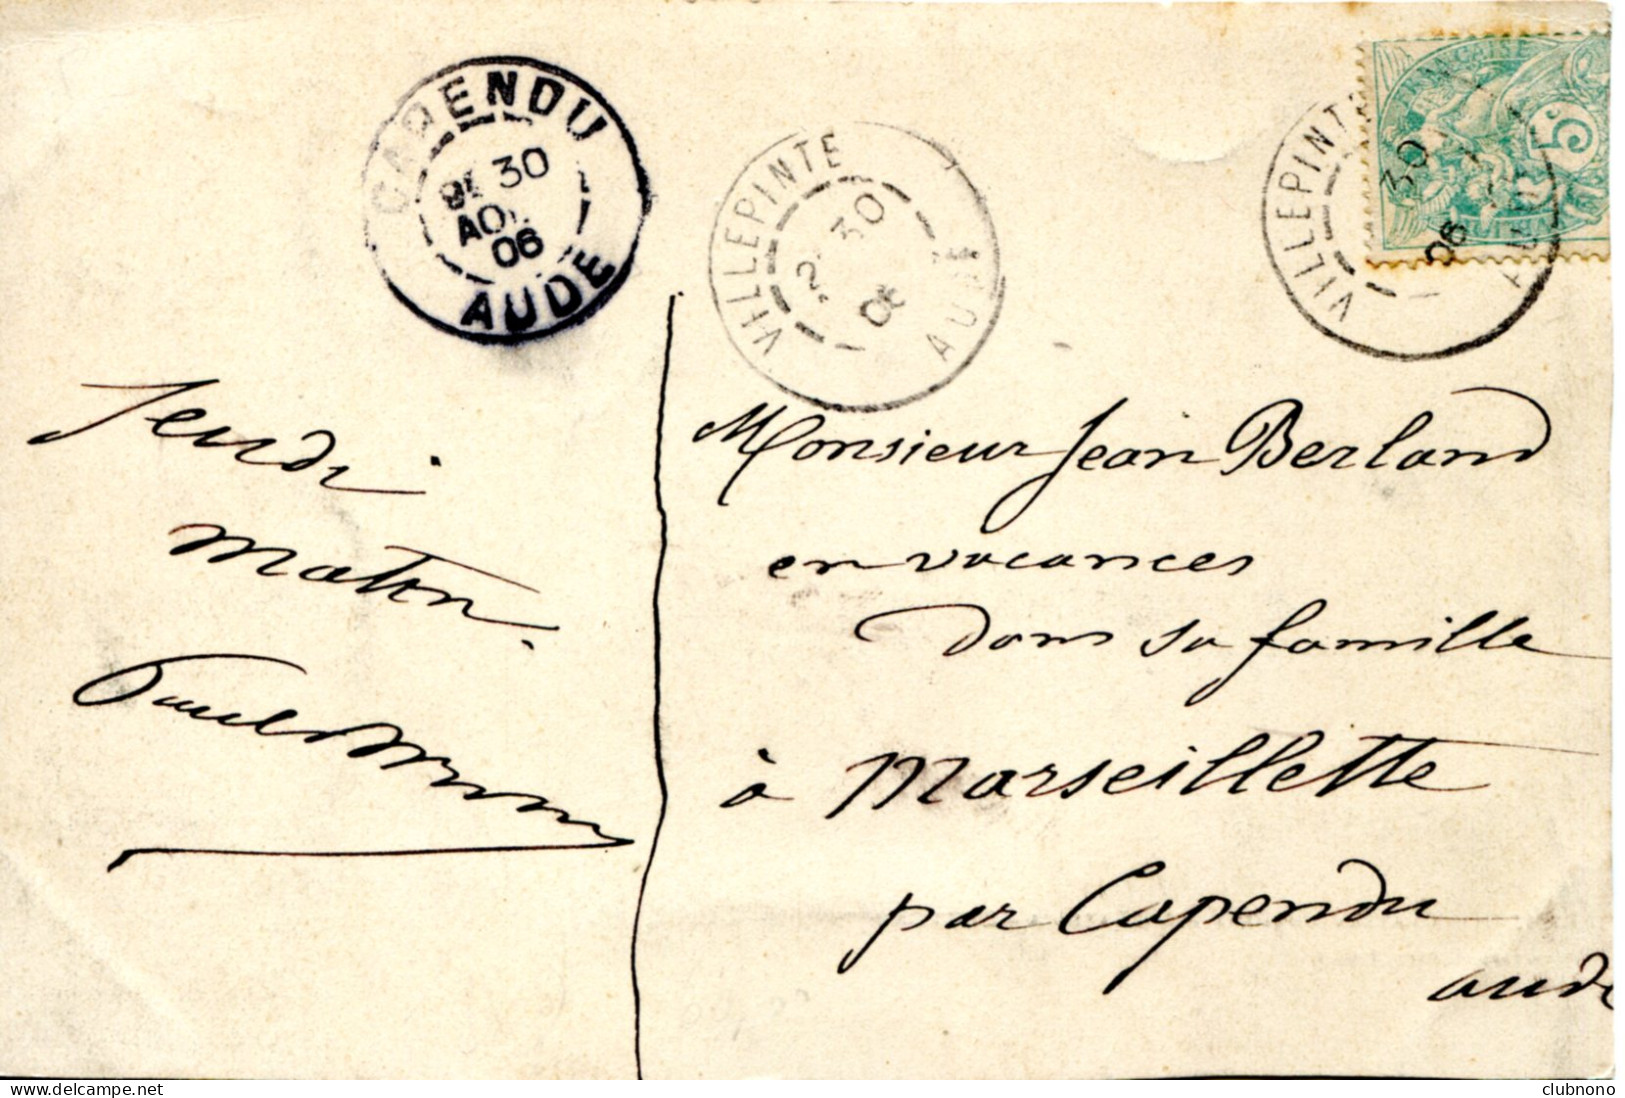 CAPENDU
30
AOU
06
AUDE
VILLEPINTE
30
06
AUDE
VILLEPINTE
30
06
AUDE
5c
Jeudi
matin.
Paul
Monsieur Jean Berland
en vacances
dans sa famille
à Marseillette
par Capendu
aude
clubnono